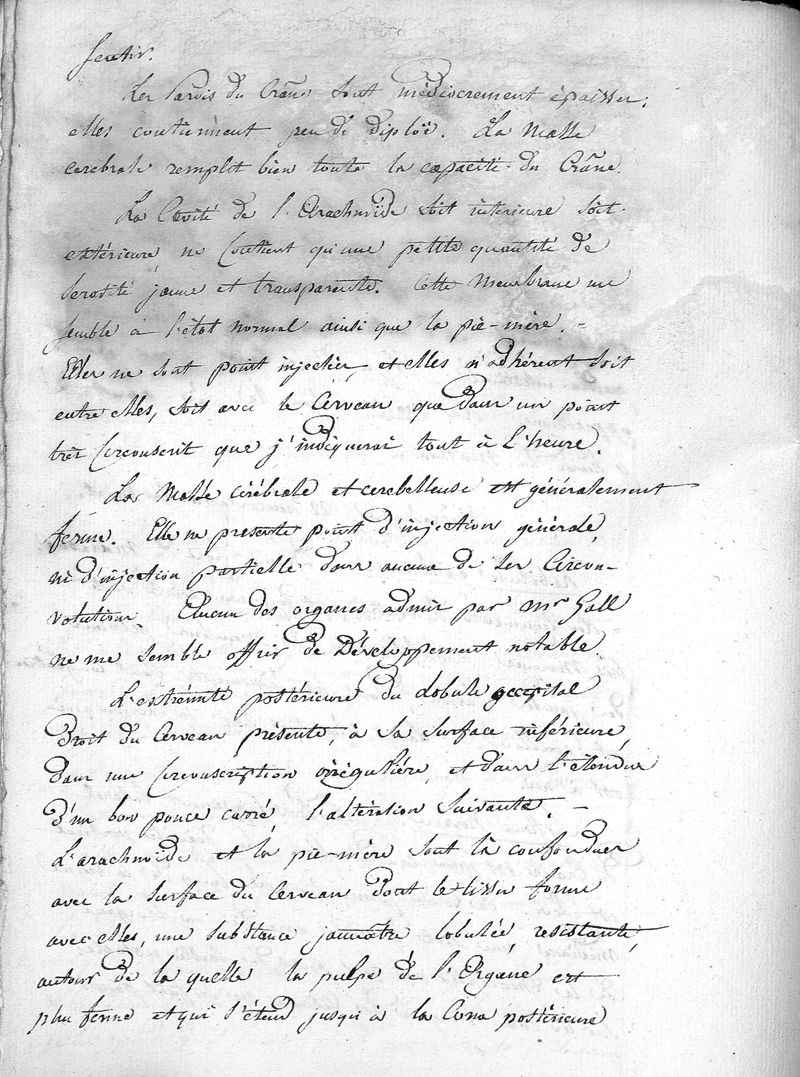 sentir.
Les Parois du Crâne sont médiocrement épaisses;
elles contiennent peu de diploë. La Masse
cerebrale remplit bien toute la capacité du Crâne.
La Cavité de l'Arachnoïde soit interieure soit
extérieure ne Contient qu'une petite quantité de
serosité jaune et transparente. Cette Membrane me
semble à l'état normal ainsi que la pie-mère. –
Elles ne sont point injectées, et elles n'adhérent soit
entre elles, soit avec le Cerveau que dans un point
très Circonscrit que j'indiquerai tout à l'heure.
La Masse cérébrale et cerebelleuse est généralement
ferme. Elle ne presente point d'injection générale,
ni d'injection partielle dans aucune de ses Circon-
volutions. Aucun des organes admis par Mr Gall
ne me semble offrir de Développement notable.
L'extrémité postérieure du lobule occipital
Droit du Cerveau présente, à sa surface inférieure,
dans une Circonscription irrégulière, et dans l'étendue
d'un bon pouce carré, l'altération suivante. –
L'arachnoïde et la pie-mère sont là confondues
avec la surface du Cerveau Dont le tissu forme
avec elles, une substance jaunâtre lobulée, resistante,
autour de la quelle la pulpe de l'Organe est
plus ferme et qui s'étend jusqu'à la Corne postérieure